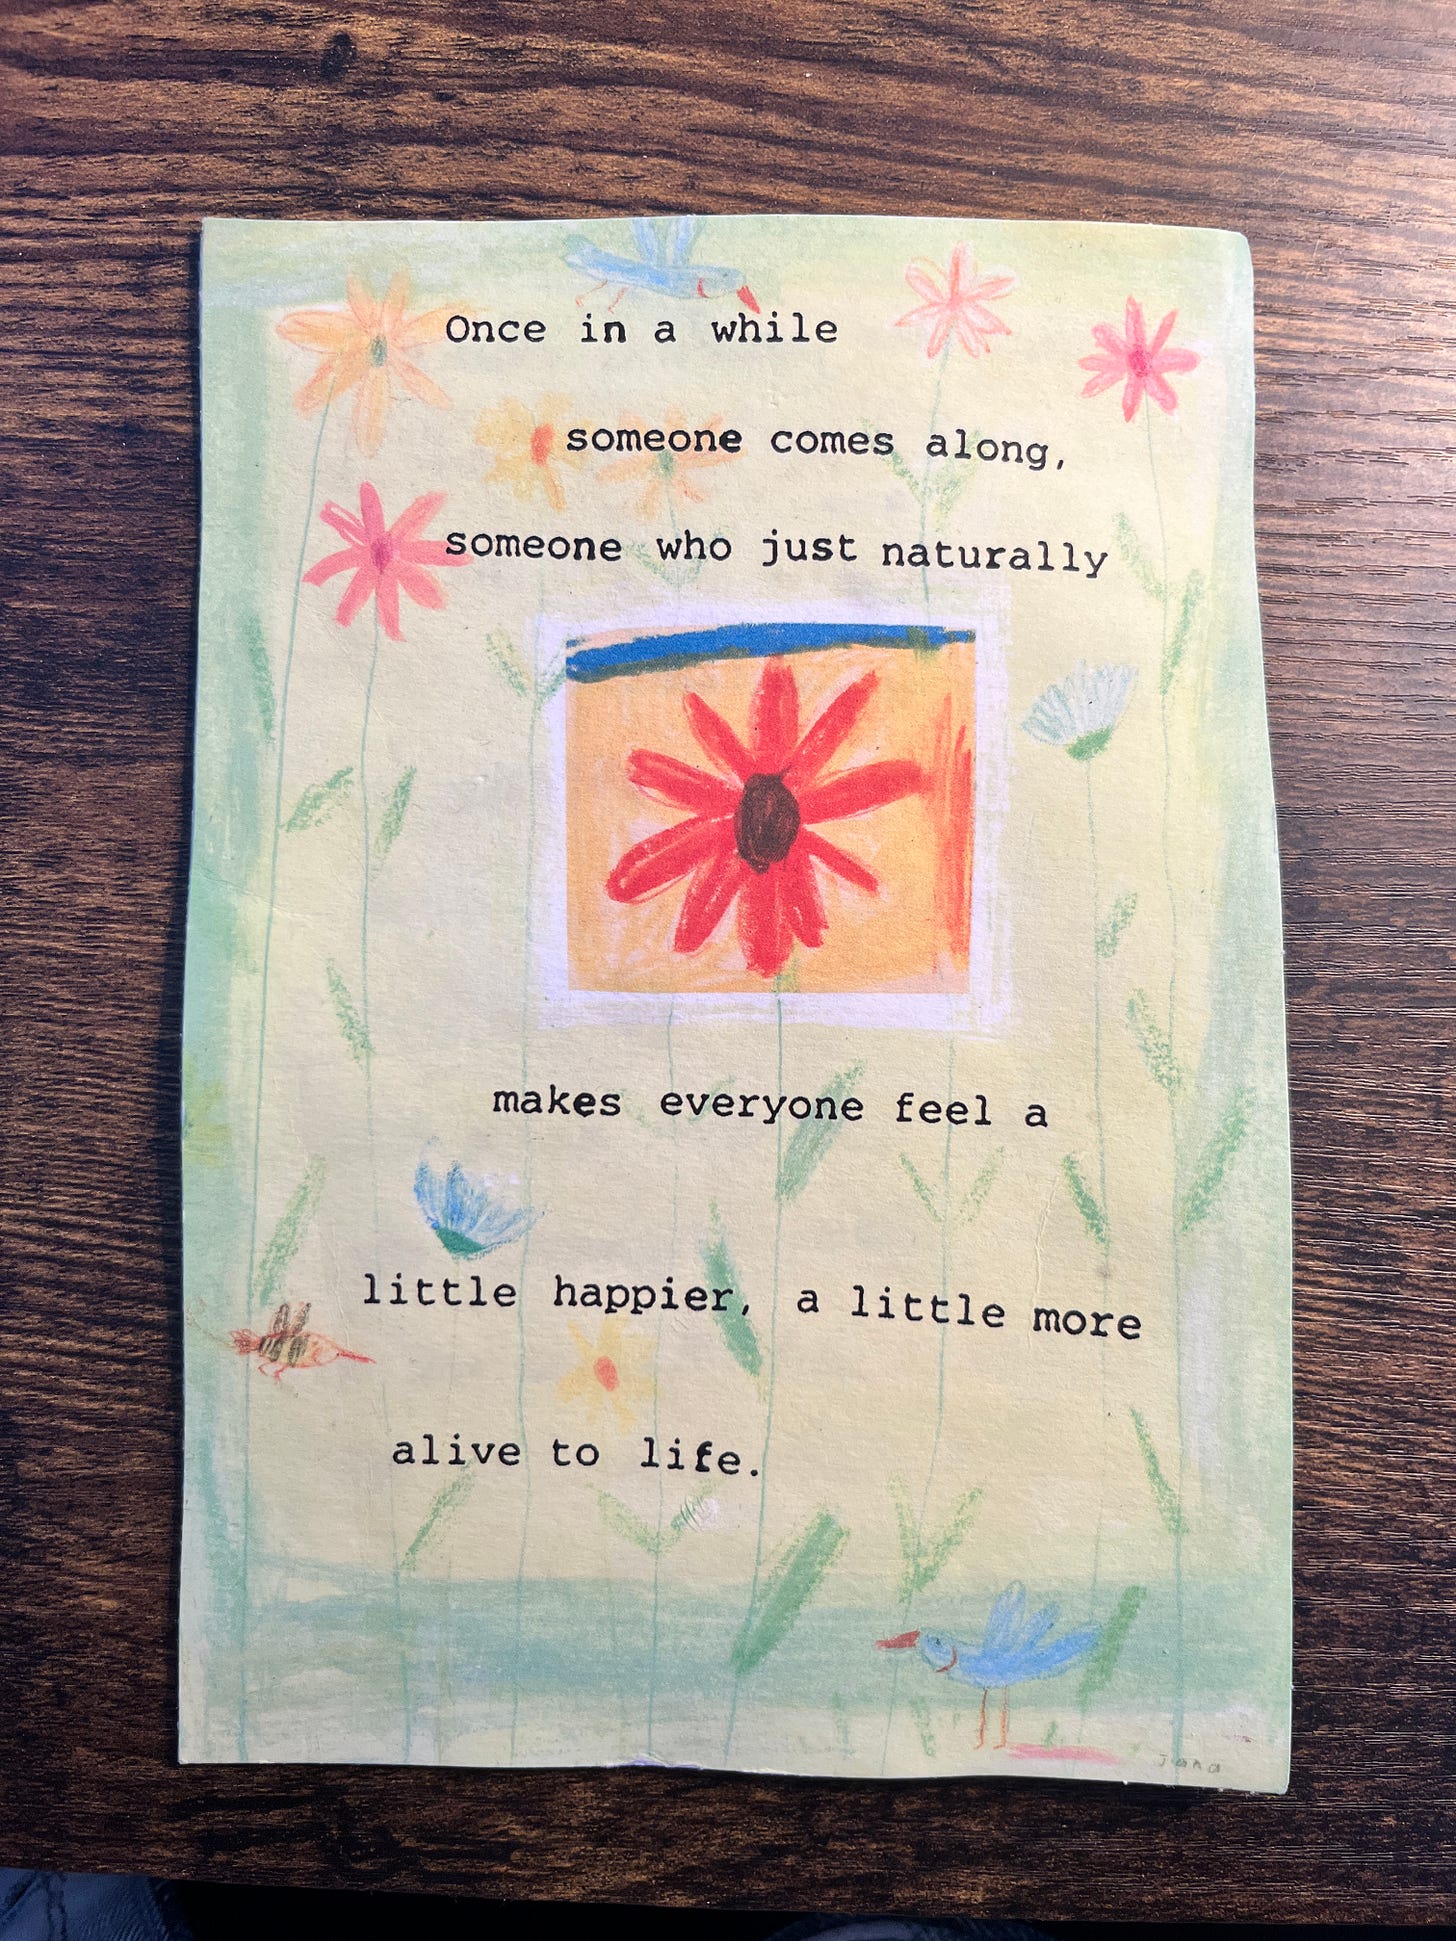 Once in a while
someone comes along,
someone who just naturally
makes everyone feel a
little happier, a little more
alive to life.
jana